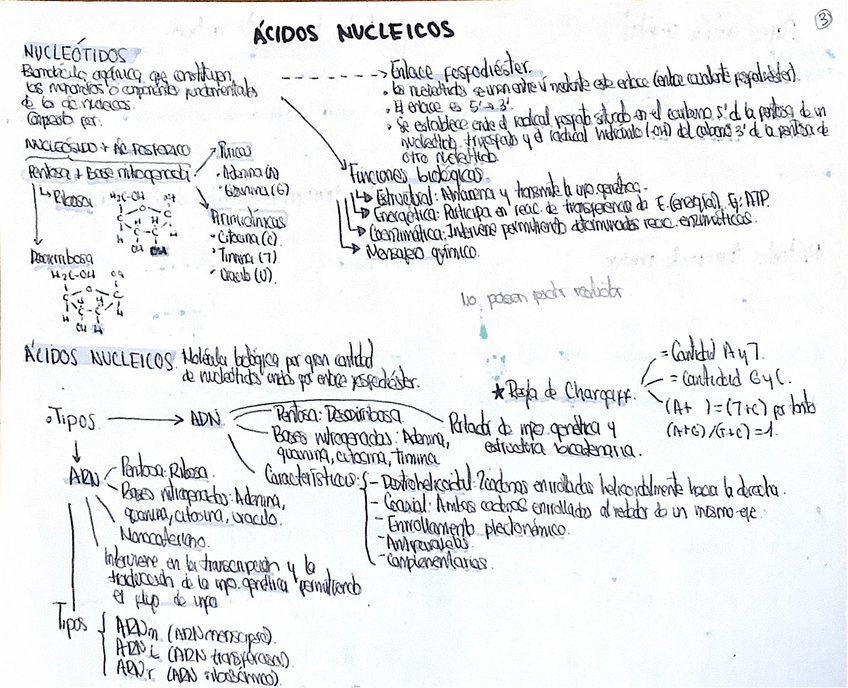 3
ÁCIDOS NUCLEICOS
NUCLEÓTIDOS
Biomolécula orgánica que constituyen
los monómeros o componentes fundamentales
de los ác. nucleicos.
Compuesto por:
NUCLEÓSIDO + ÁC FOSFÓRICO
Pentosa + Base nitrogenada
Ribosa
H₂C-OH OH
O
C C
H H
C C
OH OH
Desoxirribosa
H₂C-OH OH
O
C C
H H
C C
OH H
Púricas
· Adenina (A)
· Guanina (G)
Pirimidínicas
· Citosina (C)
· Timina (T)
· Uracilo (U)
Enlace fosfodiéster.
· Los nucleótidos se unen entre sí mediante este enlace (enlace covalente fosfodiéster).
· El enlace es 5'→3'.
· Se establece entre el radical fosfato situado en el carbono 5' de la pentosa de un
nucleótido trifosfato y el radical hidroxilo (-OH) del carbono 3' de la pentosa de
otro nucleótido.
Funciones biológicas.
Estructural: Almacena y transmite la info. genética.
Energética: Participa en reac. de transferencia de E. (energía). Ej: ATP.
Coenzimática: Interviene permitiendo determinadas reacc. enzimáticas.
Mensajero químico.
ÁCIDOS NUCLEICOS. Molécula biológica por gran cantidad
de nucleótidos unidos por enlace fosfodiéster.
★ Regla de Chargaff.
= Cantidad A y T.
= cantidad G y C.
(A+ ) = (T+C) por tanto
(A+G)/(T+C)=1.
· Tipos → ADN
Pentosa: Desoxirribosa.
Bases nitrogenadas: Adenina,
guanina, citosina, timina
Portador de info. genética y
estructura bicatenaria.
Características:
- Dextrohelicoidal: 2 cadenas enrolladas helicoidalmente hacia la derecha.
- Coaxial: Ambas cadenas enrollados alrededor de un mismo eje.
- Enrollamiento plectonémico.
- Antiparalelas.
- Complementarias.
ARN
Pentosa: Ribosa.
Bases nitrogenadas: Adenina,
guanina, citosina, uracilo.
Monocatenario.
Interviene en la transcripción y la
traducción de la info. genética permitiendo
el flujo de info
Tipos
ARNm (ARN mensajero).
ARNt (ARN transferasa).
ARNr (ARN ribosómico).